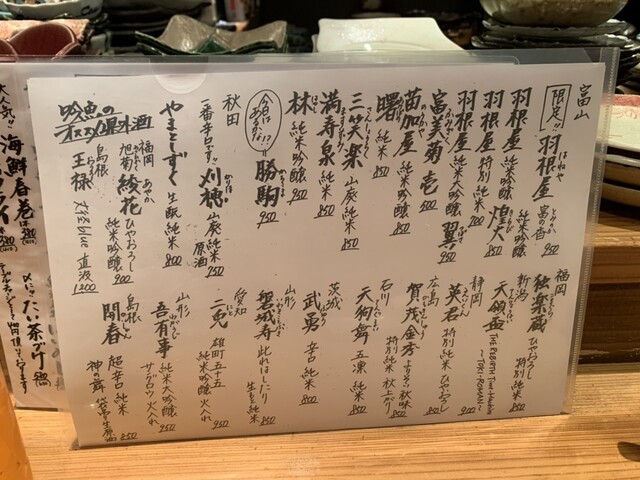 富山
限定!! 羽根屋 富の香 900
羽根屋 煌火 純米吟醸 850
羽根屋 特別純米 700
羽根屋 純米大吟醸 翼 950
富美菊 壱 500
苗加屋 純米吟醸 850
曙 純米 850
三笑楽 山廃純米 850
満寿泉 純米 850
林 純米吟醸 950
今日はあるかな!? 勝駒 950
秋田
一番辛口です!! 刈穂 山廃純米原酒 750
やまとしずく 生酛純米 800
吟魚のオススメ県外酒
福岡 旭菊 綾花 ひやおろし 純米吟醸 900
島根 王祿 丈径blue 直汲 1200
福岡
独楽蔵 ひやおろし 特別純米 850
新潟
天領盃 THE REBIRTH ～TOKI-ROMAN～
静岡
英君 特別純米 ひやおろし 900
広島
賀茂金秀 秋味 850
石川 特別純米 秋上がり
天狗舞 五凛 純米 850
茨城
武勇 辛口 純米 800
山形
磐城寿 此れはしたり 生酛純米 850
愛知
二兎 雄町五十五 純米大吟醸 火入れ 950
山形
吾有事 純米大吟醸 サブロウ 火入れ 950
島根
開春 超辛口 純米 850
大人気!!
海鮮春巻
〆に!! だい茶づけ